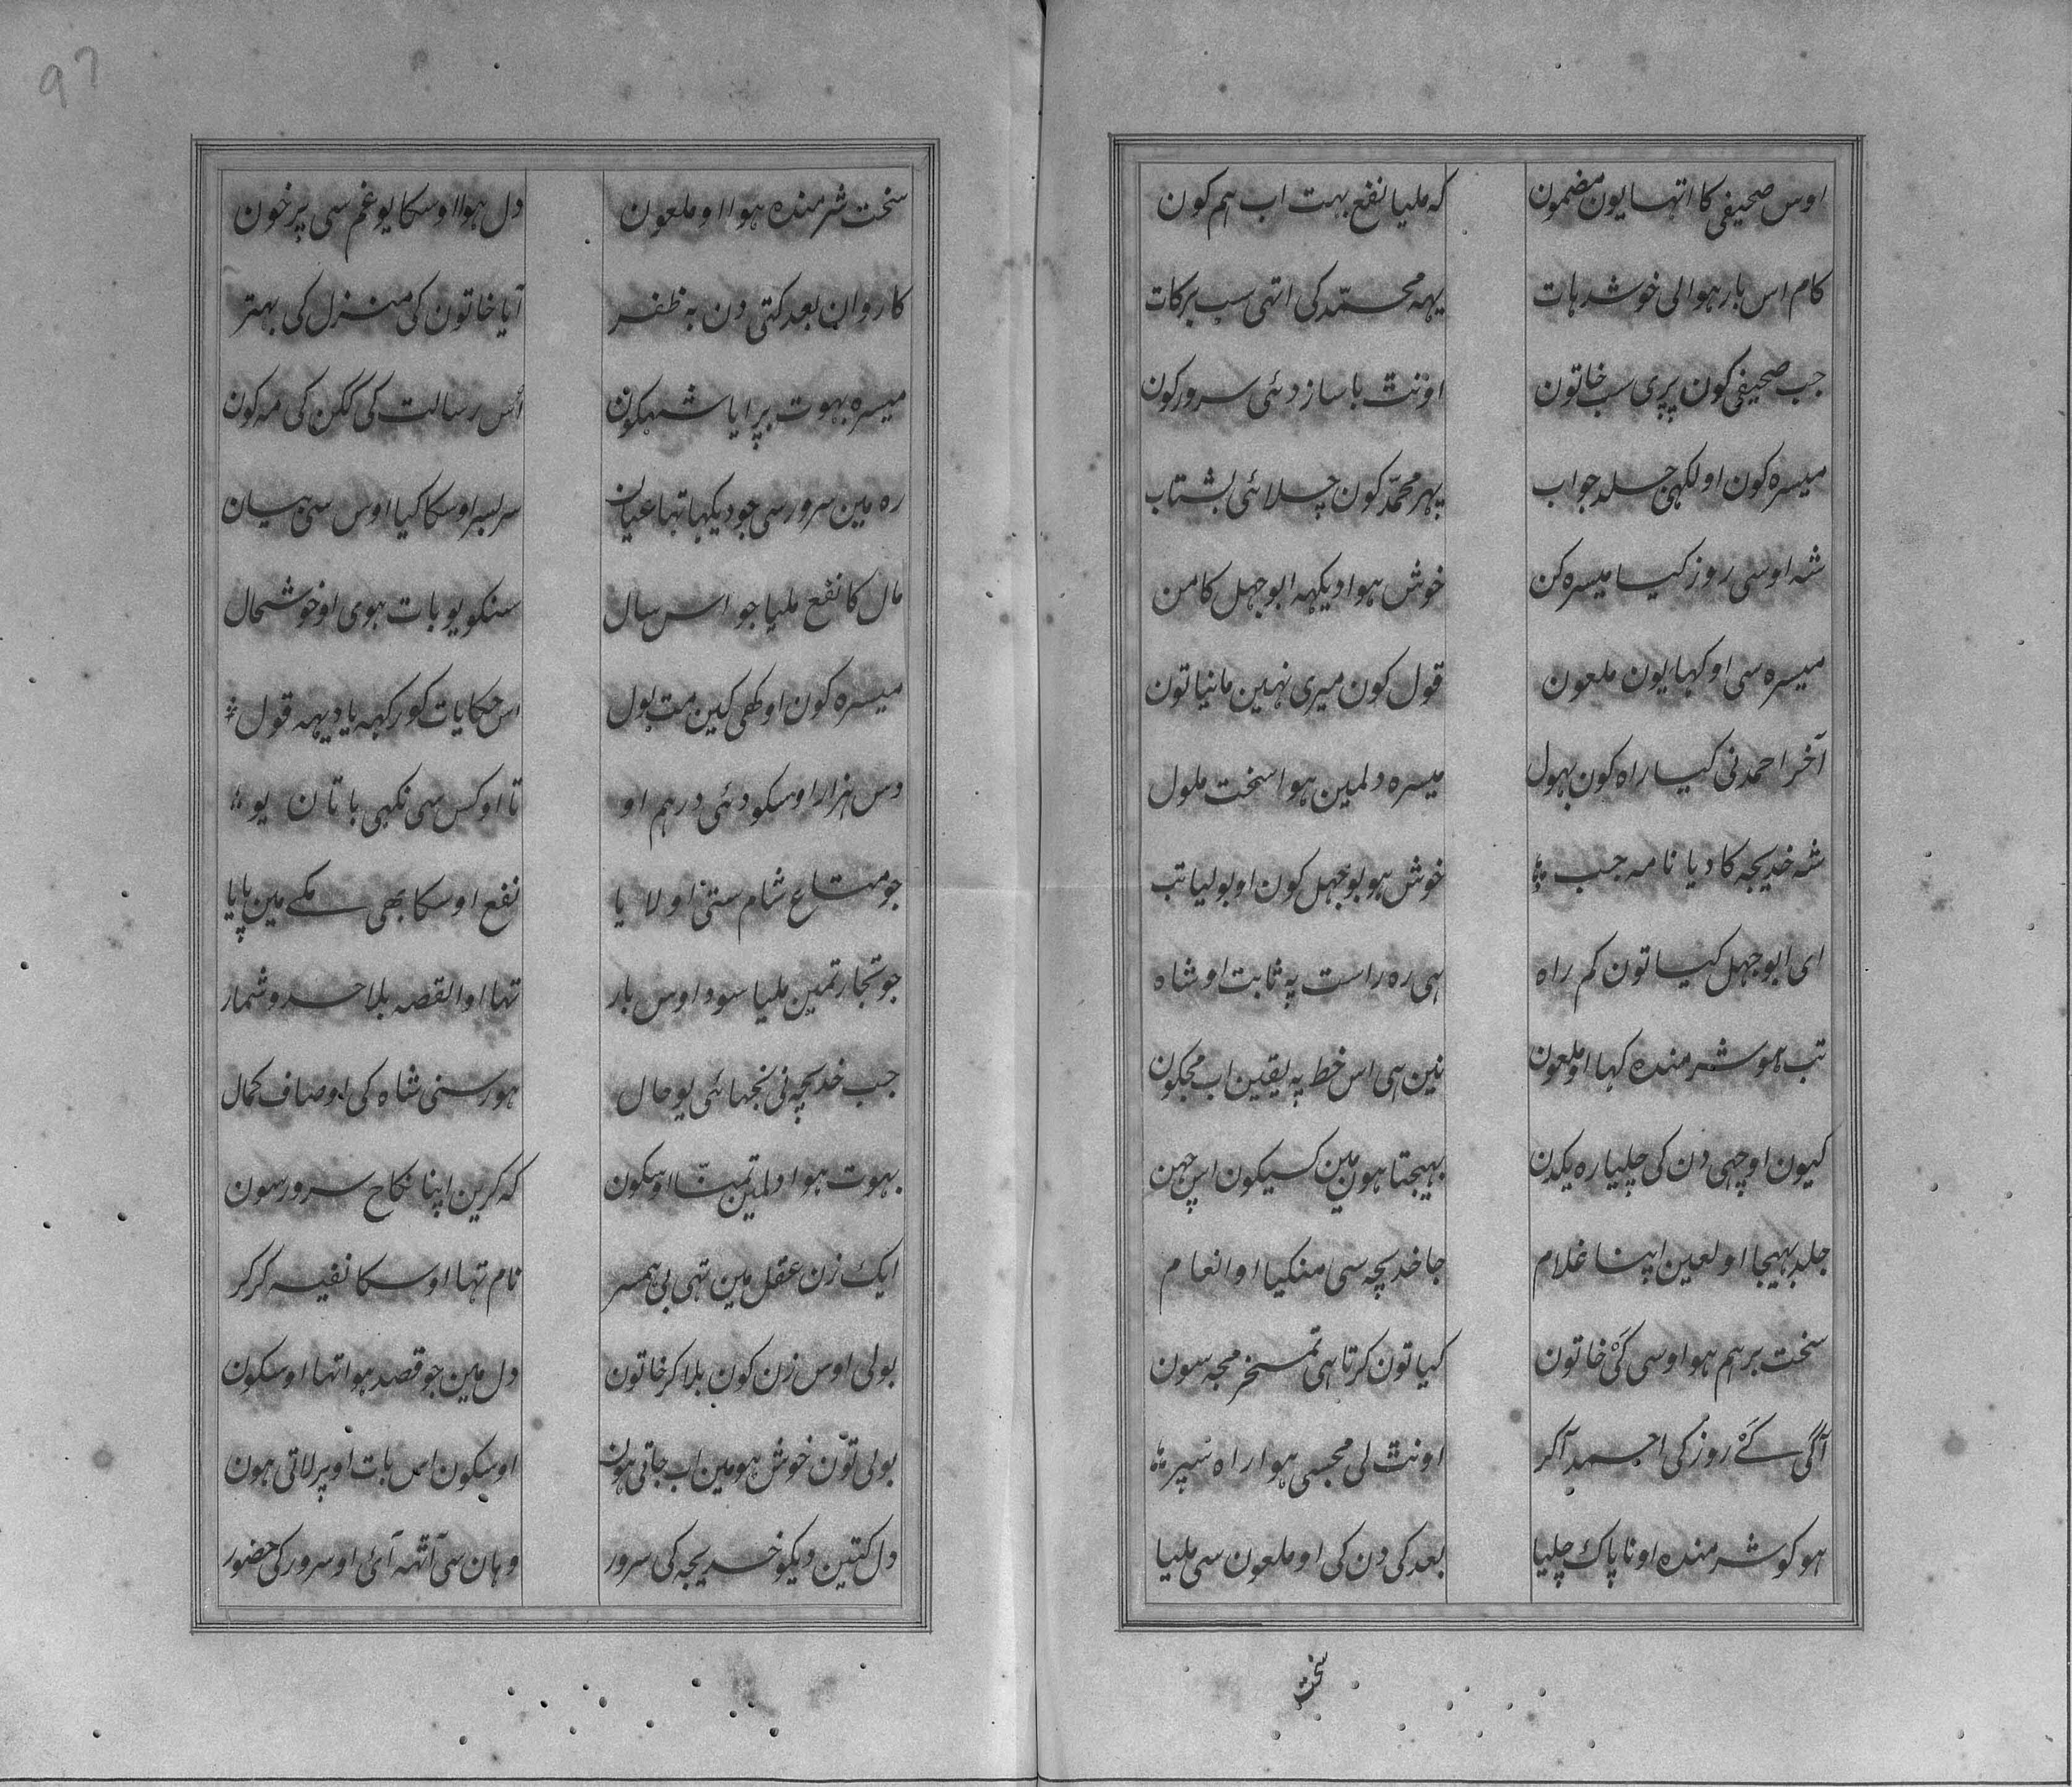 اوس صحیفی کا اتہا یون مضمون کہ ملیا نفع بہت اب ہم کون
کام اس بار ہوا لی خوش ہات یہہ محمّد کی اتہی سب برکات
جب صحیفی کون پڑی سب خاتون اونٹ با ساز دئی سرور کون
میسرہ کون او لکہی جلد جواب پہر محمّد کون چلائی بشتاب
شہ اوسی روز کیا میسرہ کن خوش ہوا دیکہہ ابو جہل کا من
میسرہ سی او کہا یون ملعون قول کون میری نہین مانیا تون
آخر احمد نی کیا راہ کون بہول میسرہ دلمین ہوا سخت ملول
شہ خدیجہ کا دیا نامہ جب خوش ہو بوجہل کون او بولیا تب
ای ابو جہل کیا تون کم راہ ہی رہ راست پہ ثابت او شاہ
تب ہو شرمندہ کہا او ملعون نین ہی اس خط پہ یقین اب مجکون
کیون او چہی دن کی چلیا رہ یکدن بہیجتا ہون مین کسیکون اس چہن
جلد بہیجا او لعین اپنا غلام جا خدیجہ سی منگیا او انعام
سخت برہم ہو اوسی کئ خاتون کیا تون کرتا ہی تمسخر مجہ سون
آگی کئ روز کی احمد آکر اونٹ لی مجسی ہوا راہ سپر
ہو کو شرمندہ او ناپاک چلیا بعد کی دن کی او ملعون سی ملیا
سخت
97
سخت شرمندہ ہوا او ملعون دل ہوا اوسکا یو غم سی پر خون
کاروان بعد کتی دن بہ ظفر آیا خاتون کی منزل کی بہتر
میسرہ بہوت سرایا شہکون اس رسالت کی گگن کی مہ کون
رہ مین سرور سی جو دیکہا تہا عیان سر بسر اوسکا کیا اوس سی بیان
مال کا نفع ملیا جو اس سال سنکو یو بات ہوی او خوشحال
میسرہ کون او کہی کین مت بول اس حکایات کو رکہہ یا دیہہ قول
دس ہزار اوسکو دئی درہم او تا او کس سی نکہی باتان یو
جو متاع شام ستی او لایا نفع اوسکا بھی مکے مین پایا
جو تجارتمین ملیا سود اوس بار تہا او القصہ بلا حد و شمار
جب خدیجہ نی نجہائی یو حال ہور سنی شاہ کی اوصاف کمال
بہوت ہوا دلمین تمنّا اوسکون کہ کرین اپنا نکاح سرور سون
ایک زن عقل مین تہی بی ہمسر نام تہا اوسکا نفیسہ کر کر
بولی اوس زن کون بلا کر خاتون دل مین جو قصد ہوا تہا اوسکون
بولی تون خوش ہو مین اب جاتی ہون اوسکون اس بات اوپر لاتی ہون
دل کتین دیکو خدیجہ کی سرور وہان سی آٹہہ آئی او سرور کی حضور